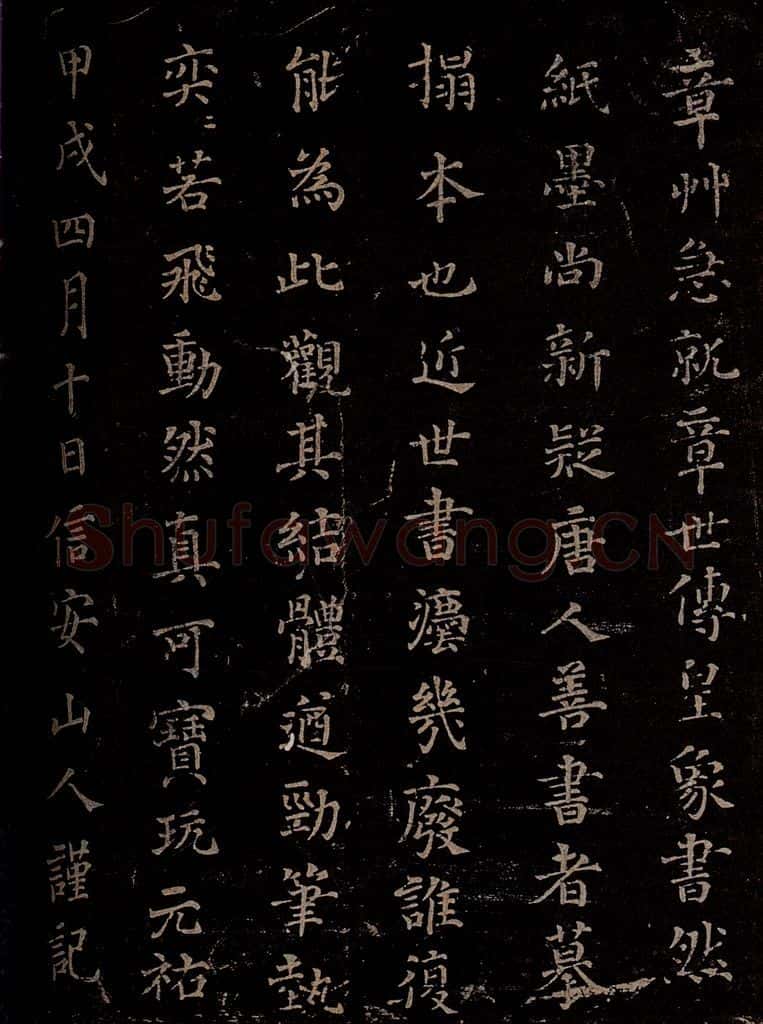 章艸急就章世傳皇象書然
紙墨尚新疑唐人善書者摹
搨本也近世書瀘幾廢誰復
能為此觀其結體遒勁筆埶
奕〻若飛動然真可寶玩元祐
甲戌四月十日信安山人謹記
Shufawang.CN